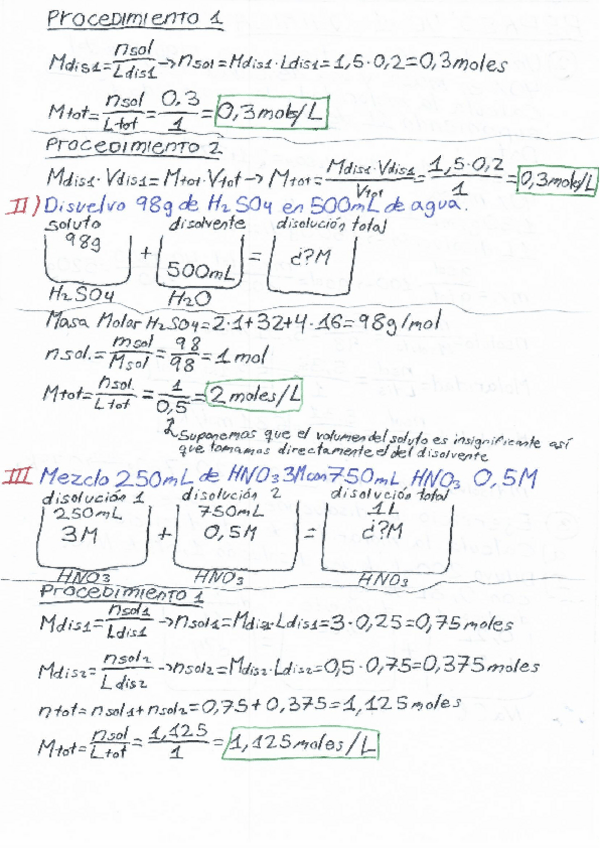 Procedimiento 1
Mdis1=nsol/Ldis1→nsol=Mdis1·Ldis1=1,5·0,2=0,3moles
Mtot=nsol/Ltot=0,3/1=0,3mols/L
Procedimiento 2
Mdis1·Vdis1=Mtot·Vtot→Mtot=Mdis1·Vdis1/Vtot=1,5·0,2/1=0,3mols/L
II) Disuelvo 98g de H₂SO4 en 500mL de agua.
soluto disolvente disolución total
98g + 500mL = ¿?M
H₂SO4 H₂O
Masa Molar H₂SO4=2·1+32+4·16=98g/mol
nsol.=msol/Msol=98/98=1mol
Mtot=nsol./Ltot=1/0,5=2moles/L
Suponemos que el volumen del soluto es insignificante así
que tomamos directamente el del disolvente
III Mezclo 250mL de HNO₃ 3M con 750mL HNO₃ 0,5M
disolución 1 disolución 2 disolución total
250mL 750mL 1L
3M + 0,5M = ¿?M
HNO₃ HNO₃ HNO₃
Procedimiento 1
Mdis1=nsol1/Ldis1→nsol1=Mdis·Ldis1=3·0,25=0,75moles
Mdis2=nsol2/Ldis2→nsol2=Mdis2·Ldis2=0,5·0,75=0,375moles
ntot=nsol1+nsol2=0,75+0,375=1,125moles
Mtot=nsol/Ltot=1,125/1=1,125moles/L